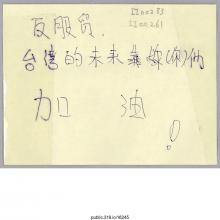 II00283
II00261
反服贸.
台湾的未来靠你(妳)们
加 油
!
public.318.io/16245